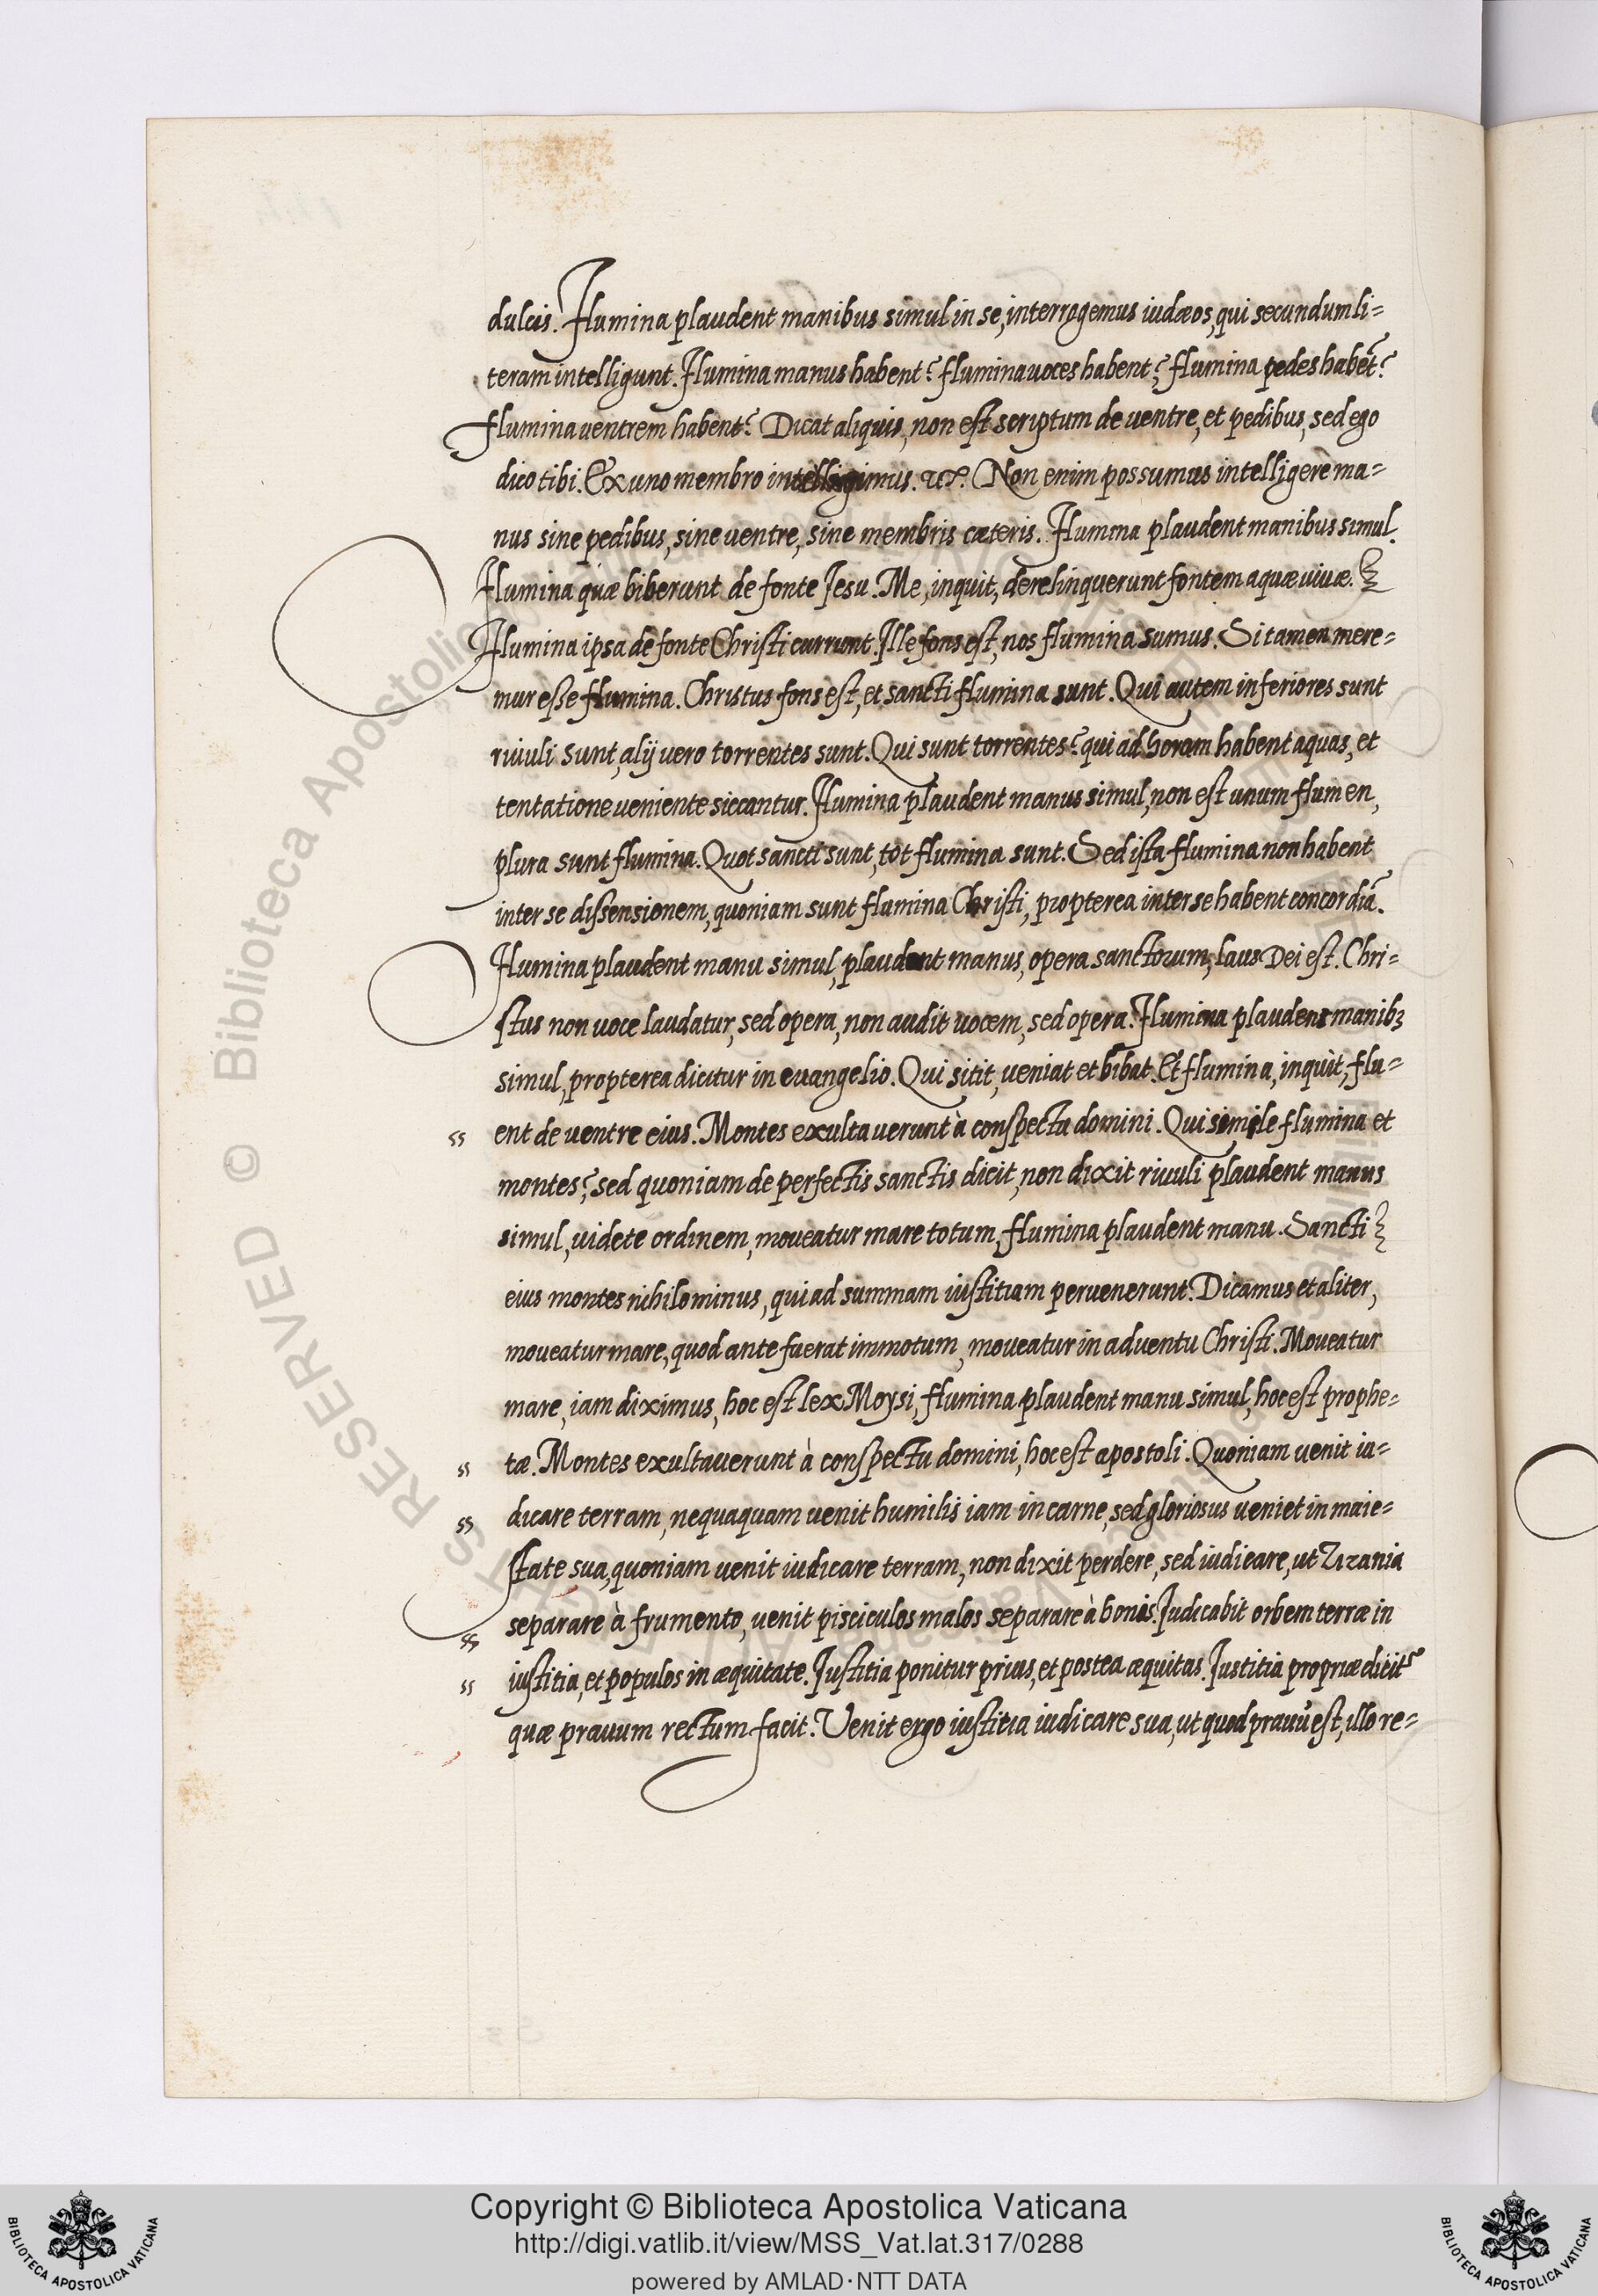 dulcis. Flumina plaudent manibus simul in se, interrogemus iudæos, qui secundum li=
teram intelligunt. Flumina manus habent? flumina uoces habent? flumina pedes habēt?
flumina uentrem habent? Dicat aliquis, non est scriptum de uentre, et pedibus, sed ego
dico tibi. Ex uno membro intelligimus. Non enim possumus intelligere ma=
nus sine pedibus, sine uentre, sine membris cæteris. Flumina plaudent manibus simul.
Flumina quæ biberunt de fonte Jesu. Me, inquit, dereliquerunt fontem aquæ uiuæ.
Flumina ipsa de fonte Christi currunt. Ille fons est, nos flumina sumus. Si tamen mere=
mur esse flumina. Christus fons est, et sancti flumina sunt. Qui autem inferiores sunt
riuuli sunt, alij vero torrentes sunt. Qui sunt torrentes? qui ad horam habent aquas, et
tentatione ueniente siccantur. Flumina plaudent manus simul, non est unum flumen,
plura sunt flumina. Quot sancti sunt, tot flumina sunt. Sed ista flumina non habent
inter se dissensionem, quoniam sunt flumina Christi, propterea inter se habent concordiā.
Flumina plaudent manu simul, plaudent manus, opera sanctorum, laus Dei est. Chri=
stus non uoce laudatur, sed opera, non audit uocem, sed opera. Flumina plaudent manibȝ
simul, propterea dicitur in euangelio. Qui sitit, ueniat et bibat. Et flumina, inquit, flu=
ss ent de uentre eius. Montes exultauerunt à conspectu domini. Qui simile flumina et
montes? sed quoniam de perfectis sanctis dicit, non dixit riuuli plaudent manus
simul, uidete ordinem, moueatur mare totum, flumina plaudent manu. Sancti
eius montes nihilominus, qui ad summam iustitiam peruenerunt. Dicamus et aliter,
moueatur mare, quod ante fuerat immotum, moueatur in aduentu Christi. Moueatur
mare, iam diximus, hoc est lex Moysi, flumina plaudent manu simul, hoc est prophe=
ss tæ. Montes exultauerunt à conspectu domini, hoc est apostoli. Quoniam uenit iu=
ss dicare terram, nequaquam uenit humilis iam in carne, sed gloriosus ueniet in maie=
state sua, quoniam uenit iudicare terram, non dixit perdere, sed iudicare, ut Zizania
ss separare à frumento, uenit pisciculos malos separare à bonis. Judicabit orbem terræ in
ss iustitia, et populos in æquitate. Justitia ponitur prius, et postea æquitas. Justitia propriæ dicit͛
quæ prauum rectum facit. Venit ergo iustitia iudicare sua, ut quod prauū est, illo re=
© Biblioteca Apostolica Vaticana
Copyright © Biblioteca Apostolica Vaticana
http://digi.vatlib.it/view/MSS_Vat.lat.317/0288
powered by AMLAD·NTT DATA
BIBLIOTECA APOSTOLICA VATICANA
BIBLIOTECA APOSTOLICA VATICANA